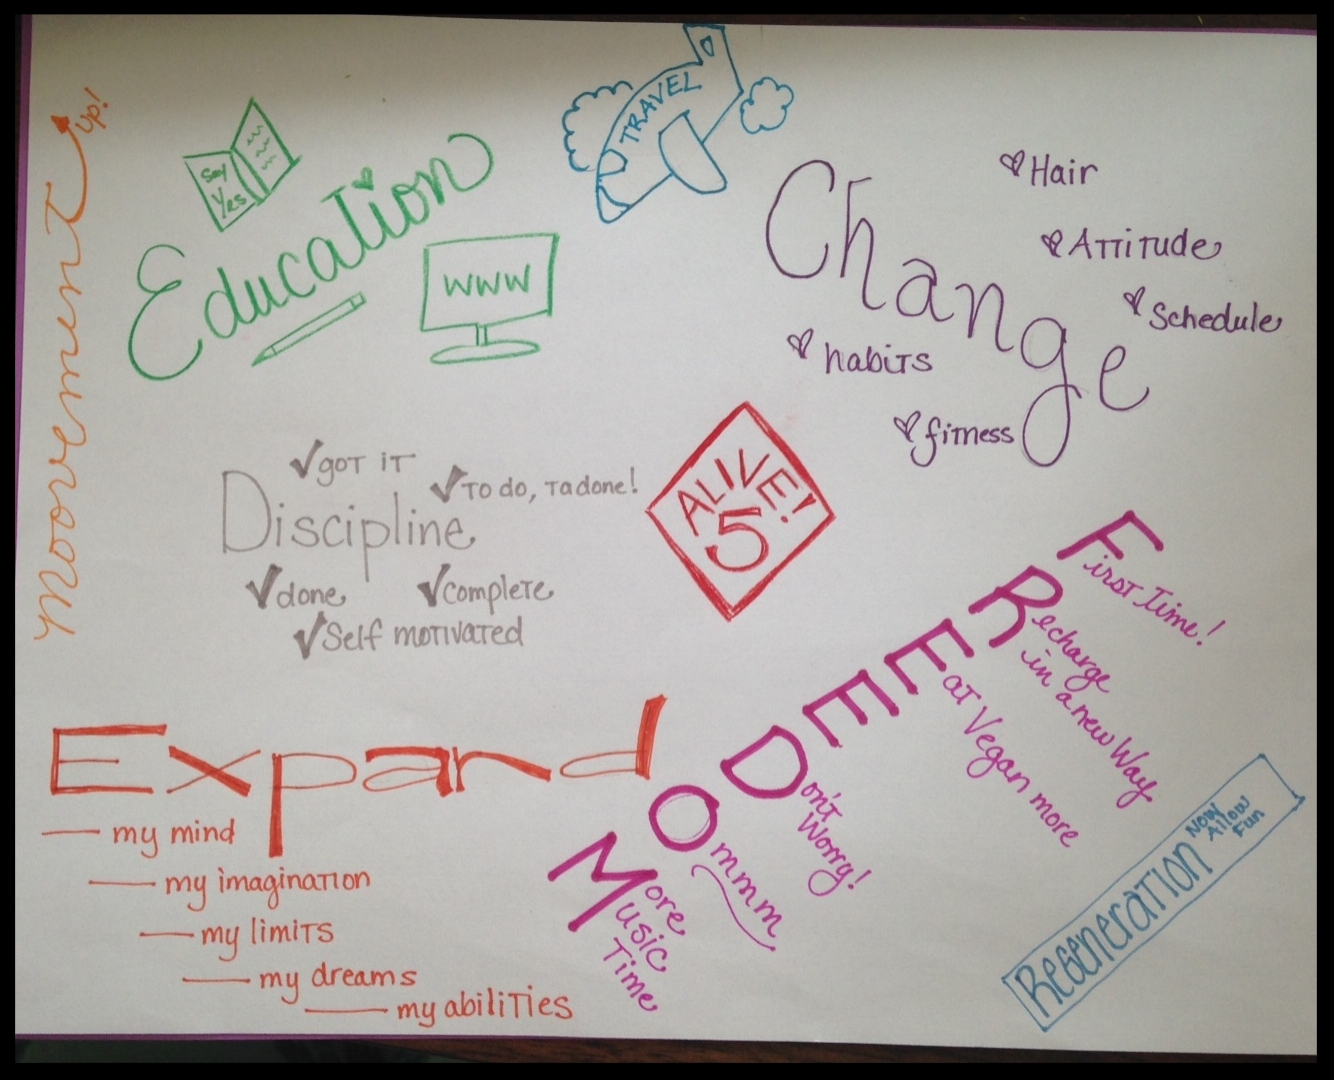 Movement up!
Say
Yes
Education
WWW
TRAVEL
Change
Hair
Attitude
Schedule
habits
fitness
Discipline
got it
To do, Tadone!
done
complete
Self motivated
ALIVE!
5
Expand
my mind
my imagination
my limits
my dreams
my abilities
FREEDOM
First Time!
Recharge
in a new Way
Eat Vegan more
Don't
Worry!
Ommm
More
Music
Time
Regeneration
NOW
Allow
Fun